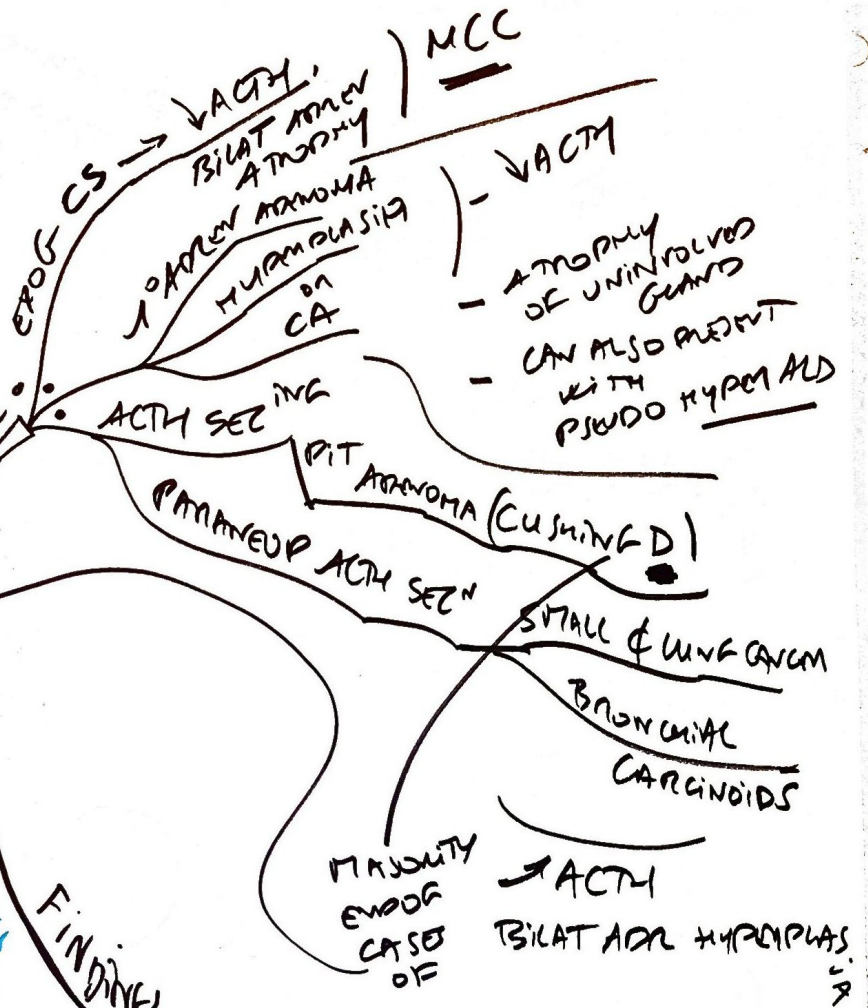 EXOG CS → ↓ACTH,
BILAT ADREN
ATROPHY
MCC
1° ADREN ADENOMA
HYPERPLASIA
OR
CA
- ↓ACTH
- ATROPHY
OF UNINVOLVED
GLAND
- CAN ALSO PRESENT
WITH
PSEUDO HYPERALD
ACTH SECING
PIT
ADENOMA (CUSHING D)
PARANEOP ACTH SECN
SMALL ¢ LUNG CANCER
BRONCHIAL
CARCINOIDS
MAJORITY
ENDOG
CASES
OF
↑ACTH
BILAT ADR HYPERPLASIA
FINDINGS